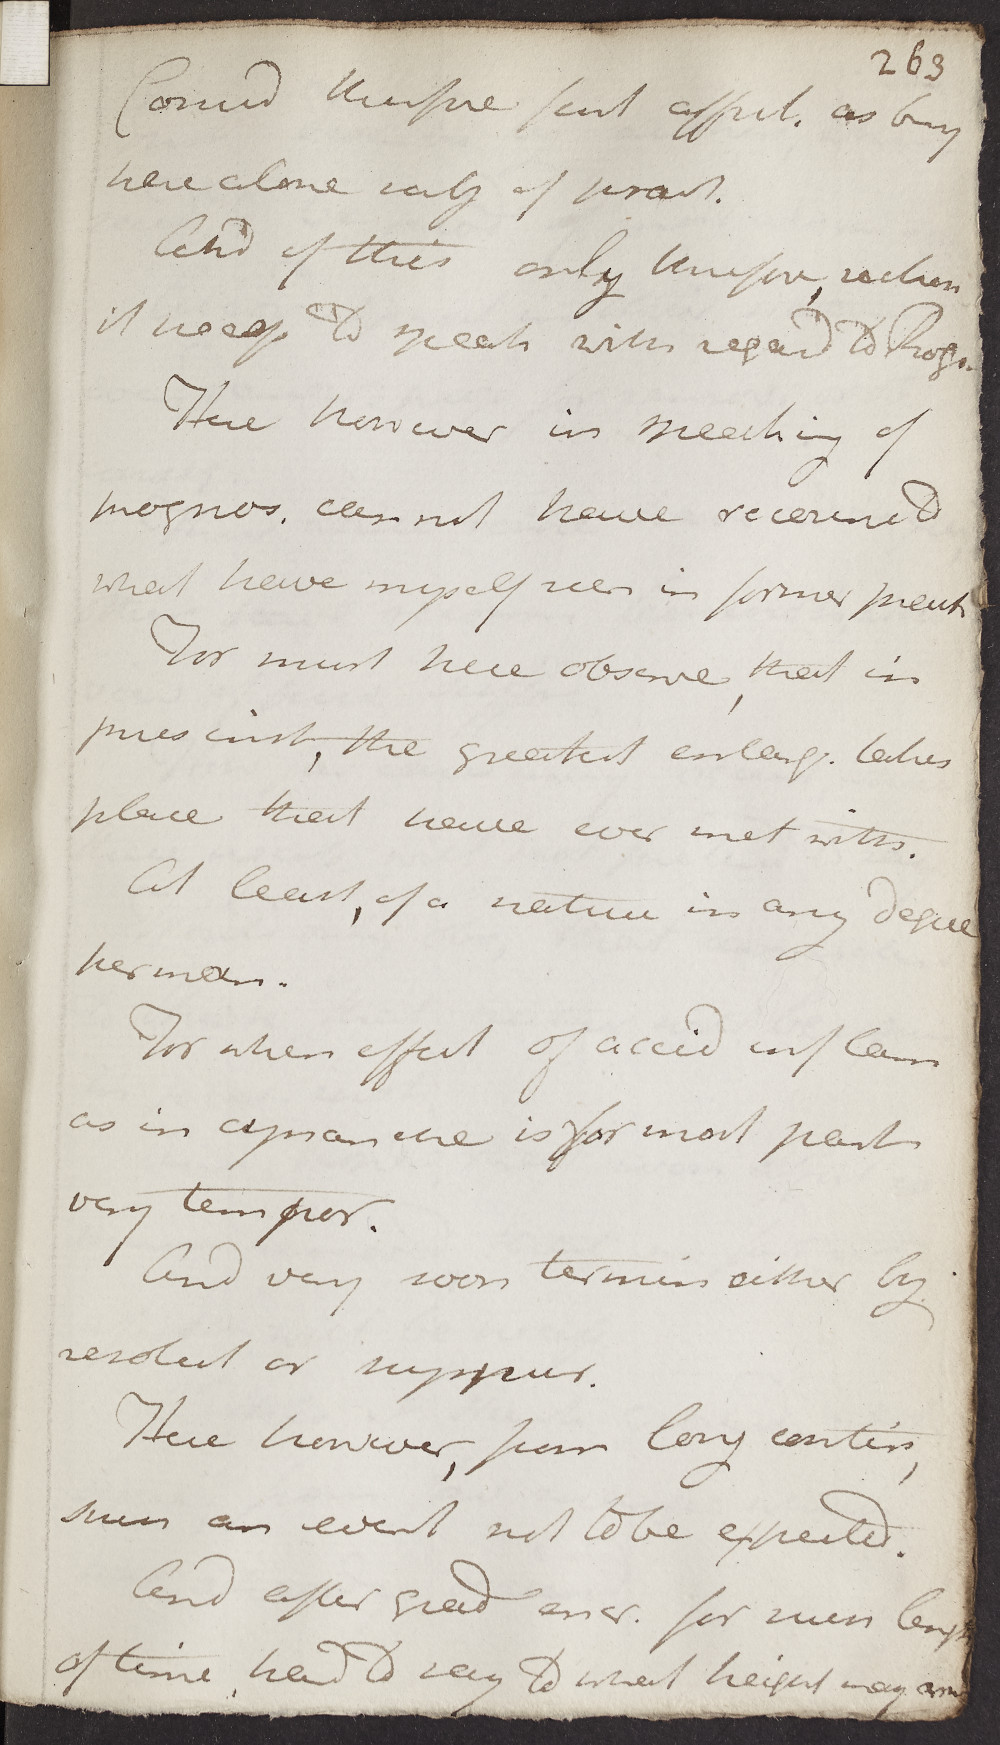 263
Consid therefore first affect. as being
here alone subj of pract.
And of this only therefore, reckon
it necess to speak with regard to Progn.
Here however in speaking of
prognos. can not have recourse to
what have myself seen in former pract
For must here observe, that in
pres inst, the greatest enlarg. takes
place that have ever met with.
At least, of a nature in any degree
perman.
For when effect of accid inflam
as in cynanche is for most part
very tempor.
And very soon termin either by
resolut or suppur.
Here however, from long contin,
such an event not to be expected.
And after grad encr. for such length
of time, hard to say to what height may arrive